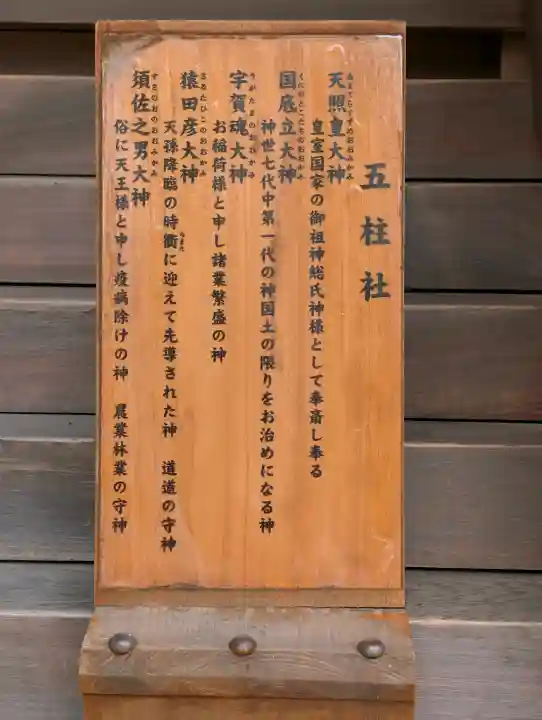 五柱社
天照皇大神
皇室国家の御祖神総氏神様として奉斎し奉る
国底立大神
神世七代中第一代の神国土の限りをお治めになる神
宇賀魂大神
お稲荷様と申し諸業繁盛の神
猿田彦大神
天孫降臨の時衢に迎えて先導された神 道道の守神
須佐之男大神
俗に天王様と申し疫病除けの神 農業林業の守神